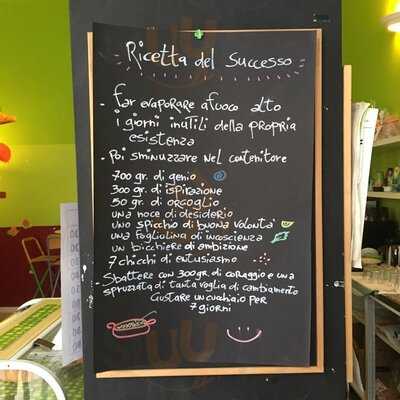 Ricetta del successo
- far evaporare a fuoco alto
i giorni inutili della propria
esistenza
- poi sminuzzare nel contenitore
700 gr. di genio
300 gr. di ispirazione
50 gr. di orgoglio
una noce di desiderio
uno spicchio di buona volontà
una fogliolina di incoscienza
un bicchiere di ambizione
7 chicchi di entusiasmo
Sbattere con 300 gr. di coraggio e una
spruzzata di tanta voglia di cambiamento
Gustare un cucchiaio per
7 giorni